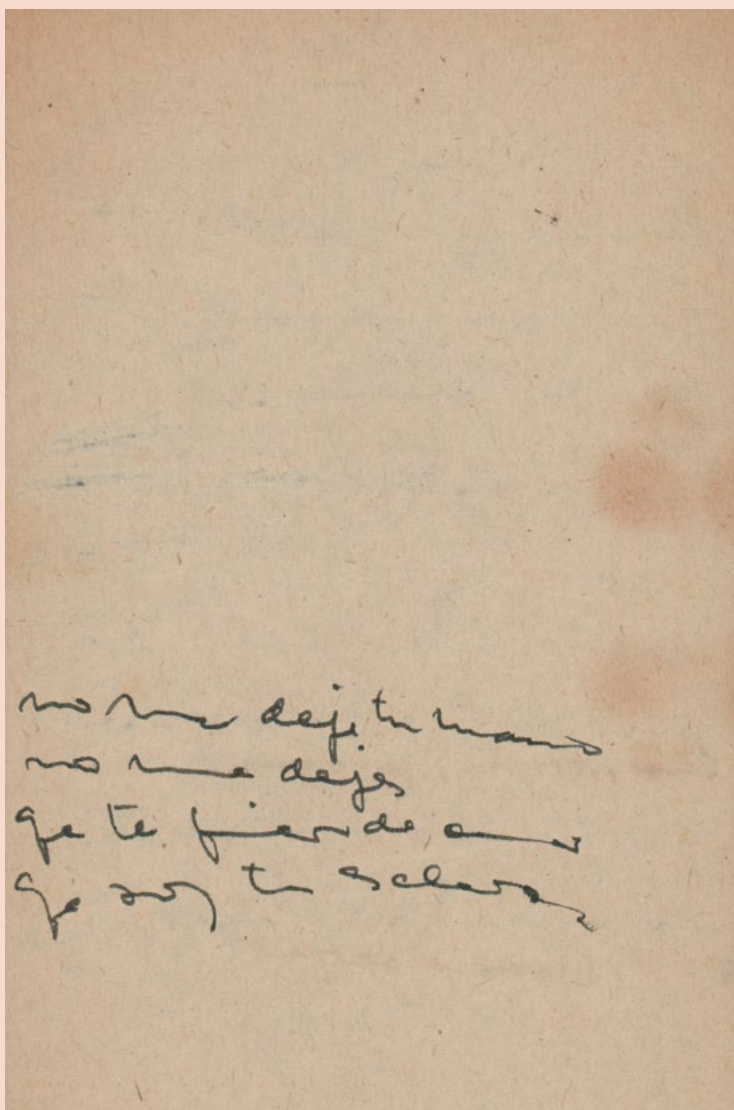 no me deje tu mano
no me dejes
qe te pierde amor
qe soy tu esclavo